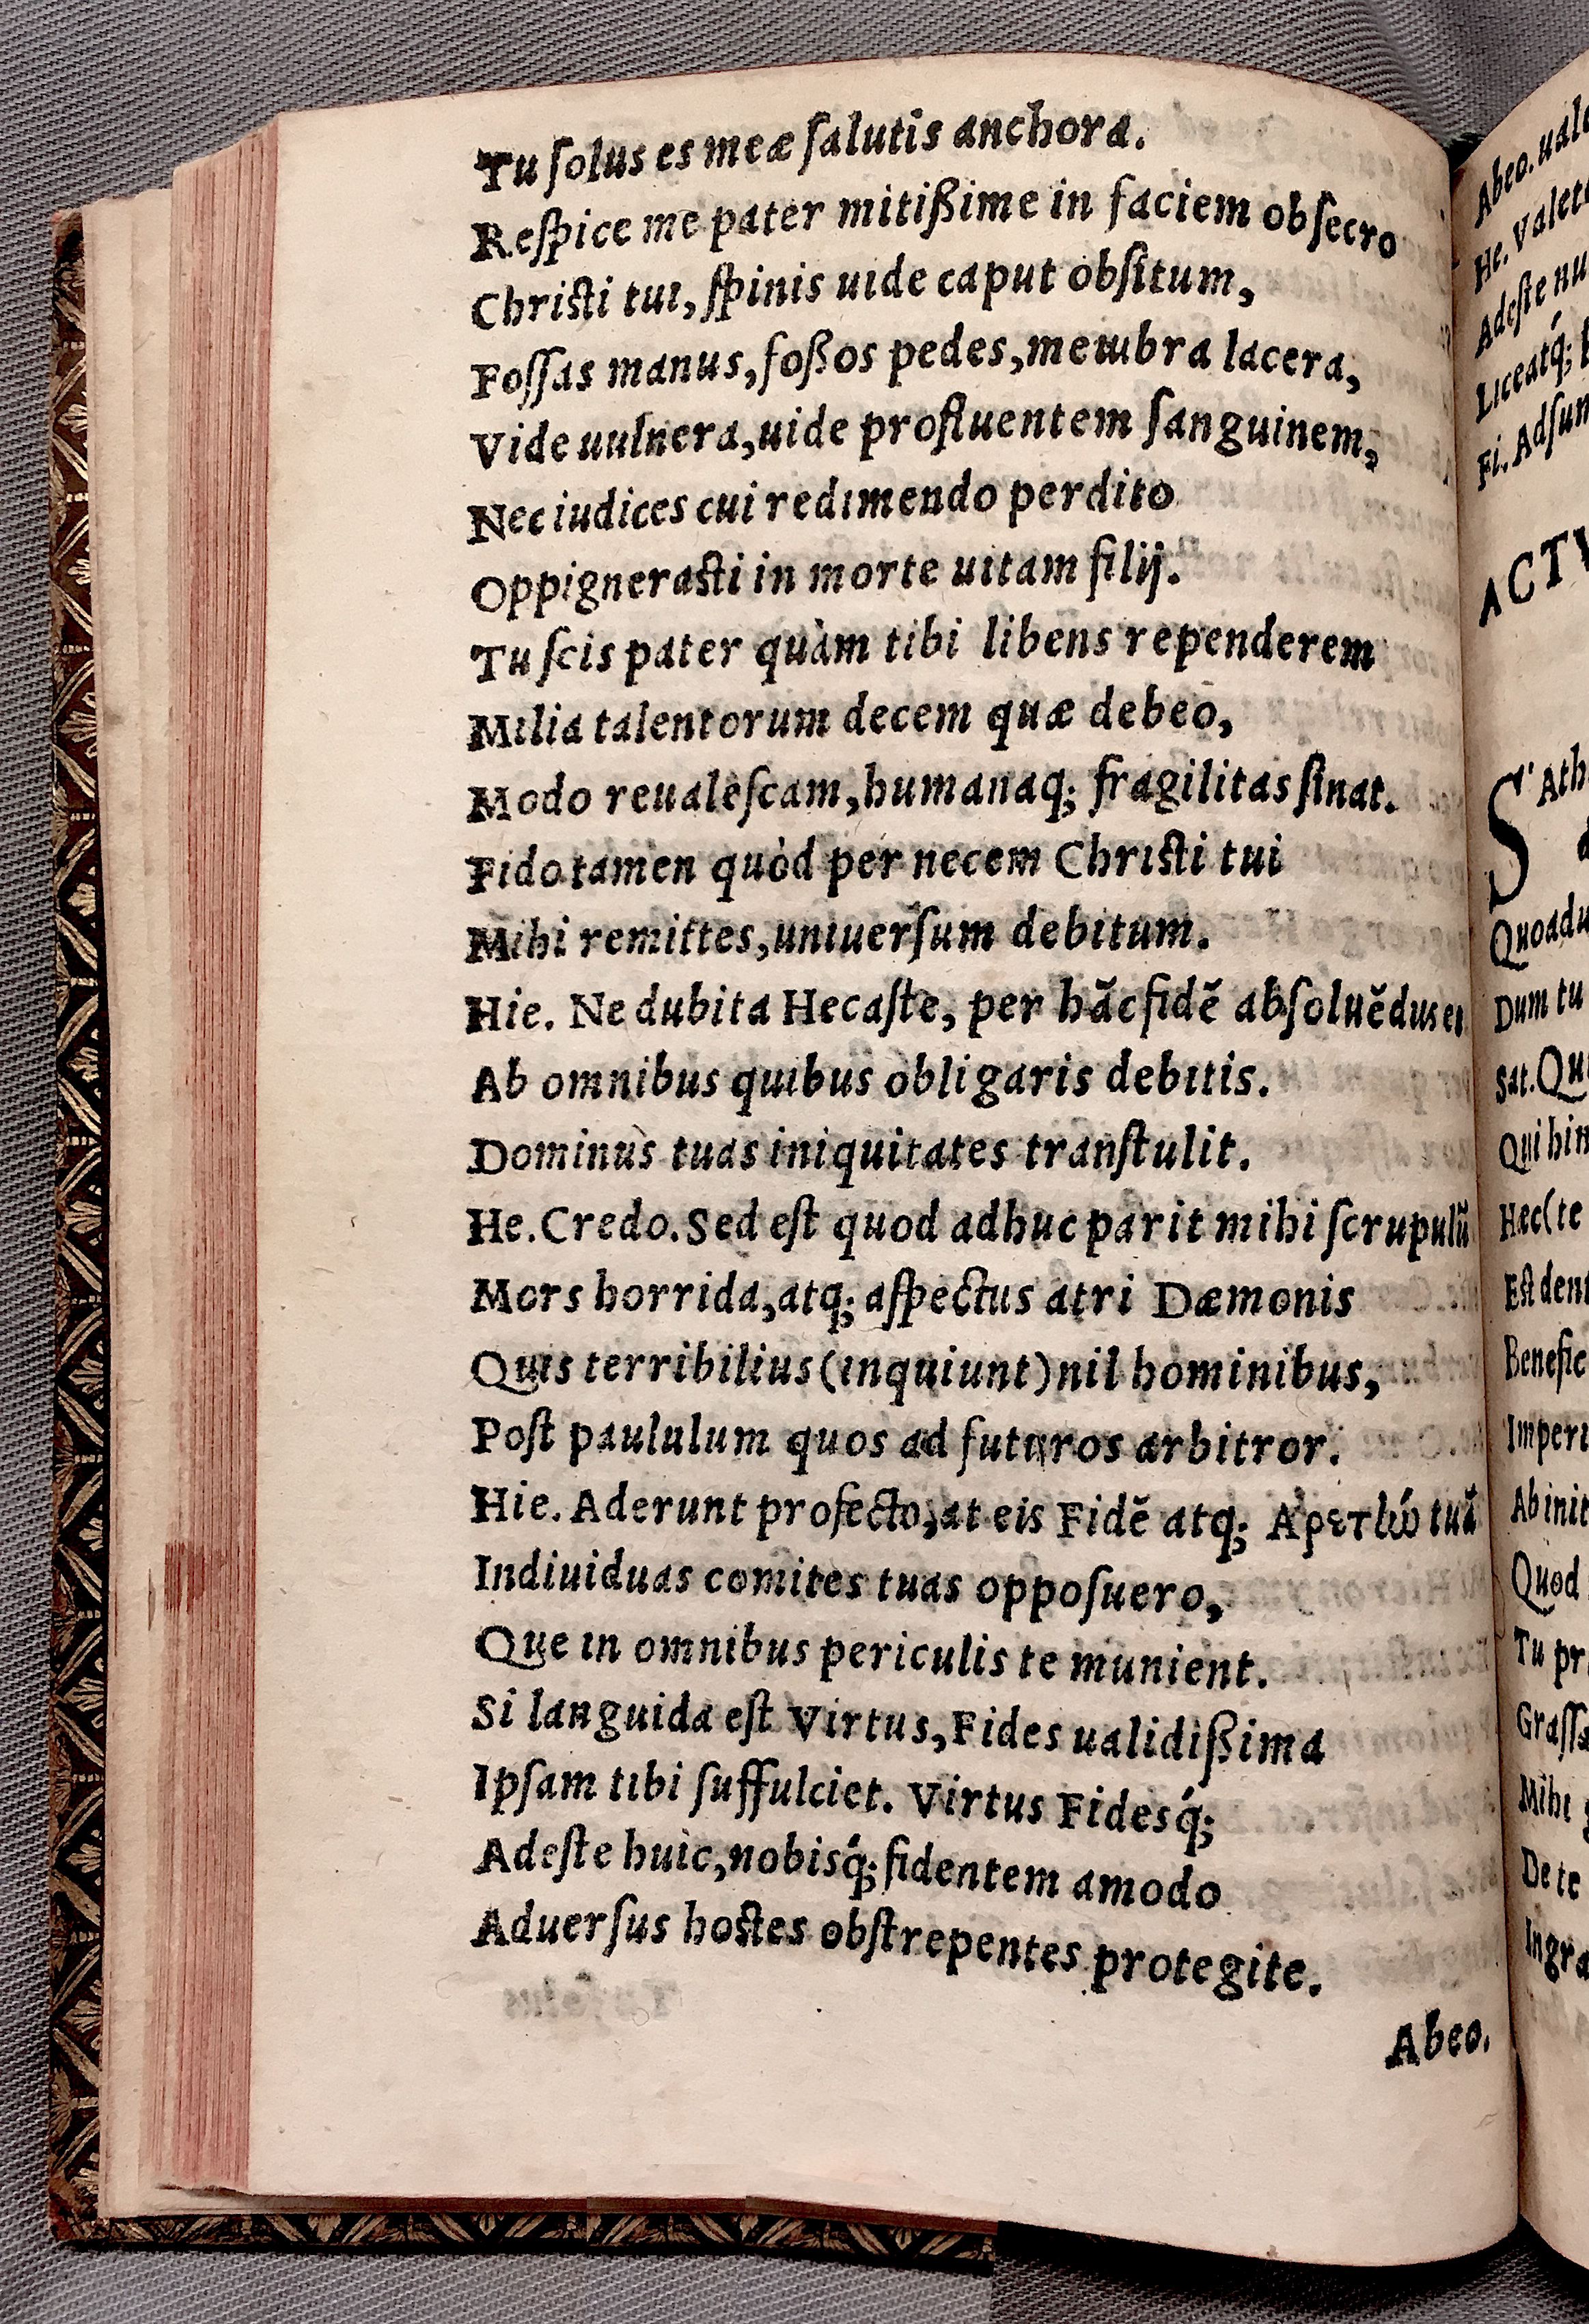 Tu ſolus es meæ ſalutis anchora.
Reſpice me pater mitißime in faciem obſecro
Chriſti tui, ſpinis uide caput obſitum,
Foſſas manus, foßos pedes, membra lacera,
Vide uulnera, uide profluentem ſanguinem,
Nec iudices cui redimendo perdito
Oppignerasti in morte uitam filij.
Tu ſcis pater quàm tibi libens rependerem
Milia talentorum decem quæ debeo,
Modo reualeſcam, humanaq; fragilitas ſinat.
Fido tamen quòd per necem Chriſti tui
Mihi remittes, uniuerſum debitum.
Hie. Ne dubita Hecaſte, per hāc fidē abſoluēdus
Ab omnibus quibus obligaris debitis.
Dominus tuas iniquitates tranſtulit.
He. Credo. Sed eſt quod adhuc parit mihi ſcrupulū
Mors horrida, atq; aſpectus atri Dæmonis
Quis terribilius (inquiunt) nil hominibus,
Poſt paululum quos ad futuros arbitror.
Hie. Aderunt profecto, at eis Fidē atq; Αρετἰώ tuā
Indiuiduas comites tuas oppoſuero,
Que in omnibus periculis te munient.
Si languida eſt Virtus, Fides ualidißima
Ipſam tibi ſuffulciet. Virtus Fidesq́;
Adeſte huic, nobisq́; fidentem amodo
Aduerſus hoſtes obſtrepentes protegite.
Abeo.
Abeo.
He.
Adeſte
Liceatq́;
Fi.
S
Dum tu
Sat.
Tu
Mihi
De te